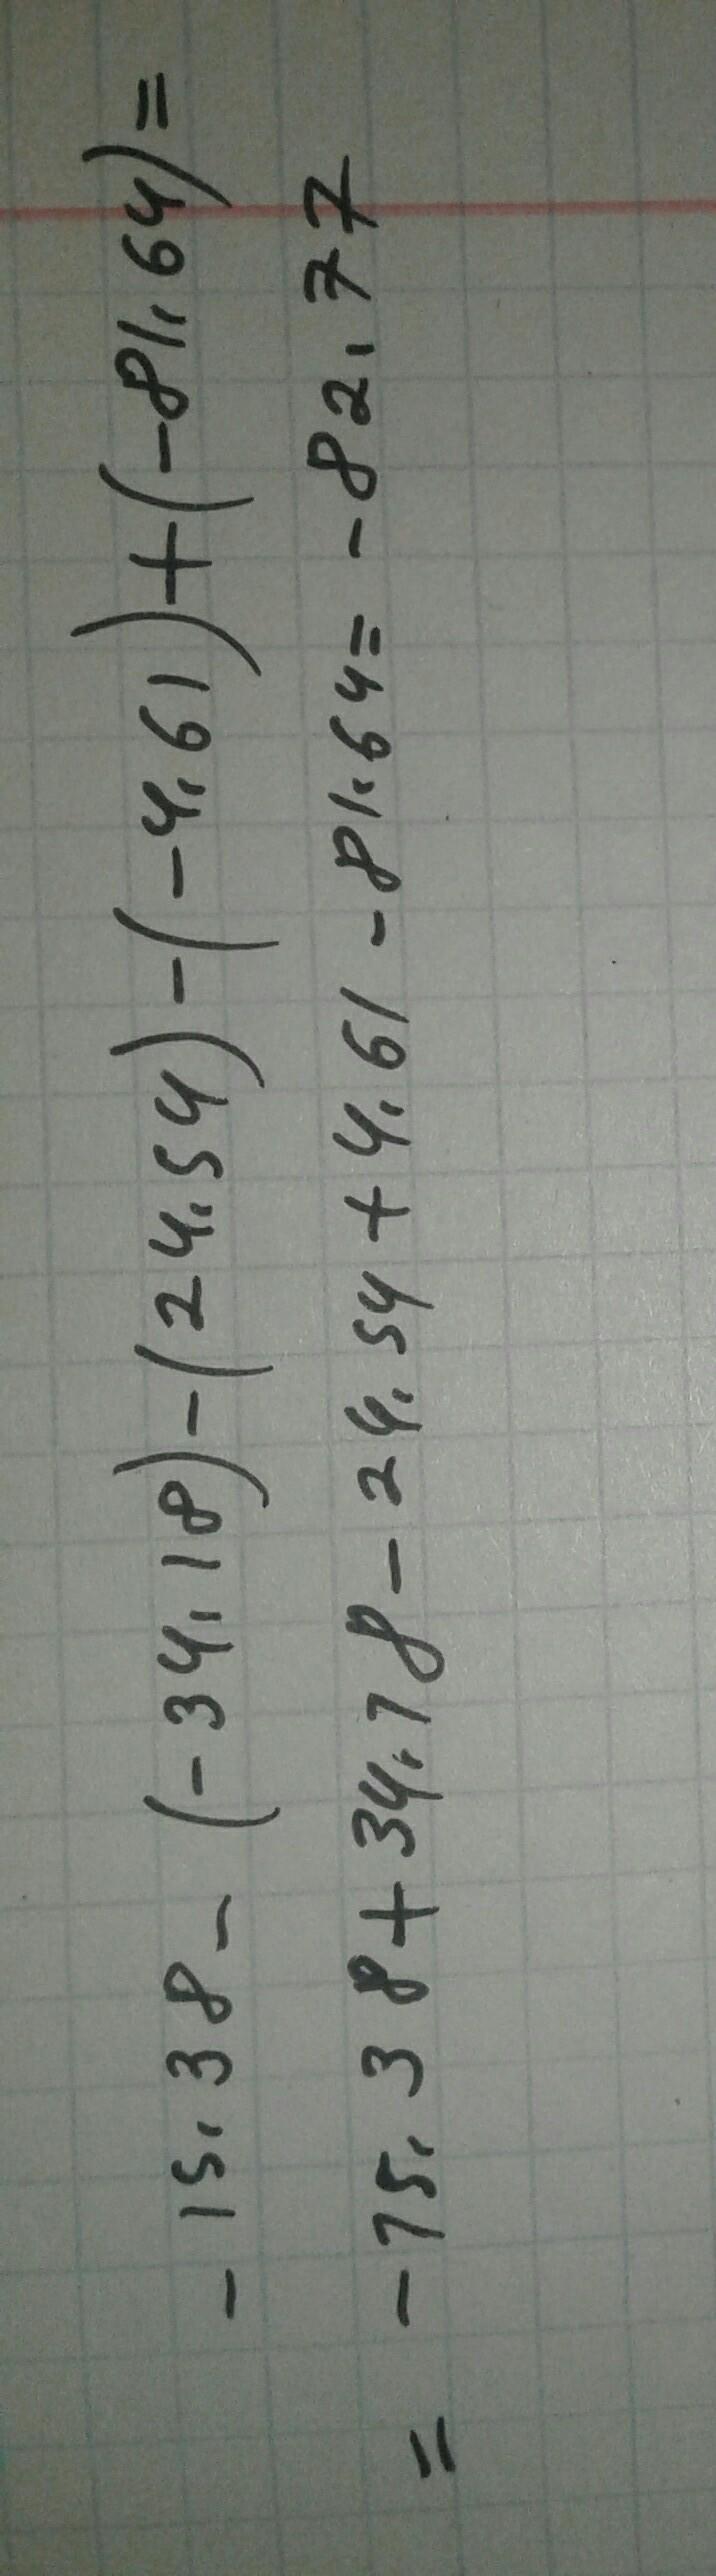 - 15.38 - (-34.18) - (24.54) - (-4.61) + (-81.64) =
= -15.38 + 34.18 - 24.54 + 4.61 - 81.64 = - 82.77